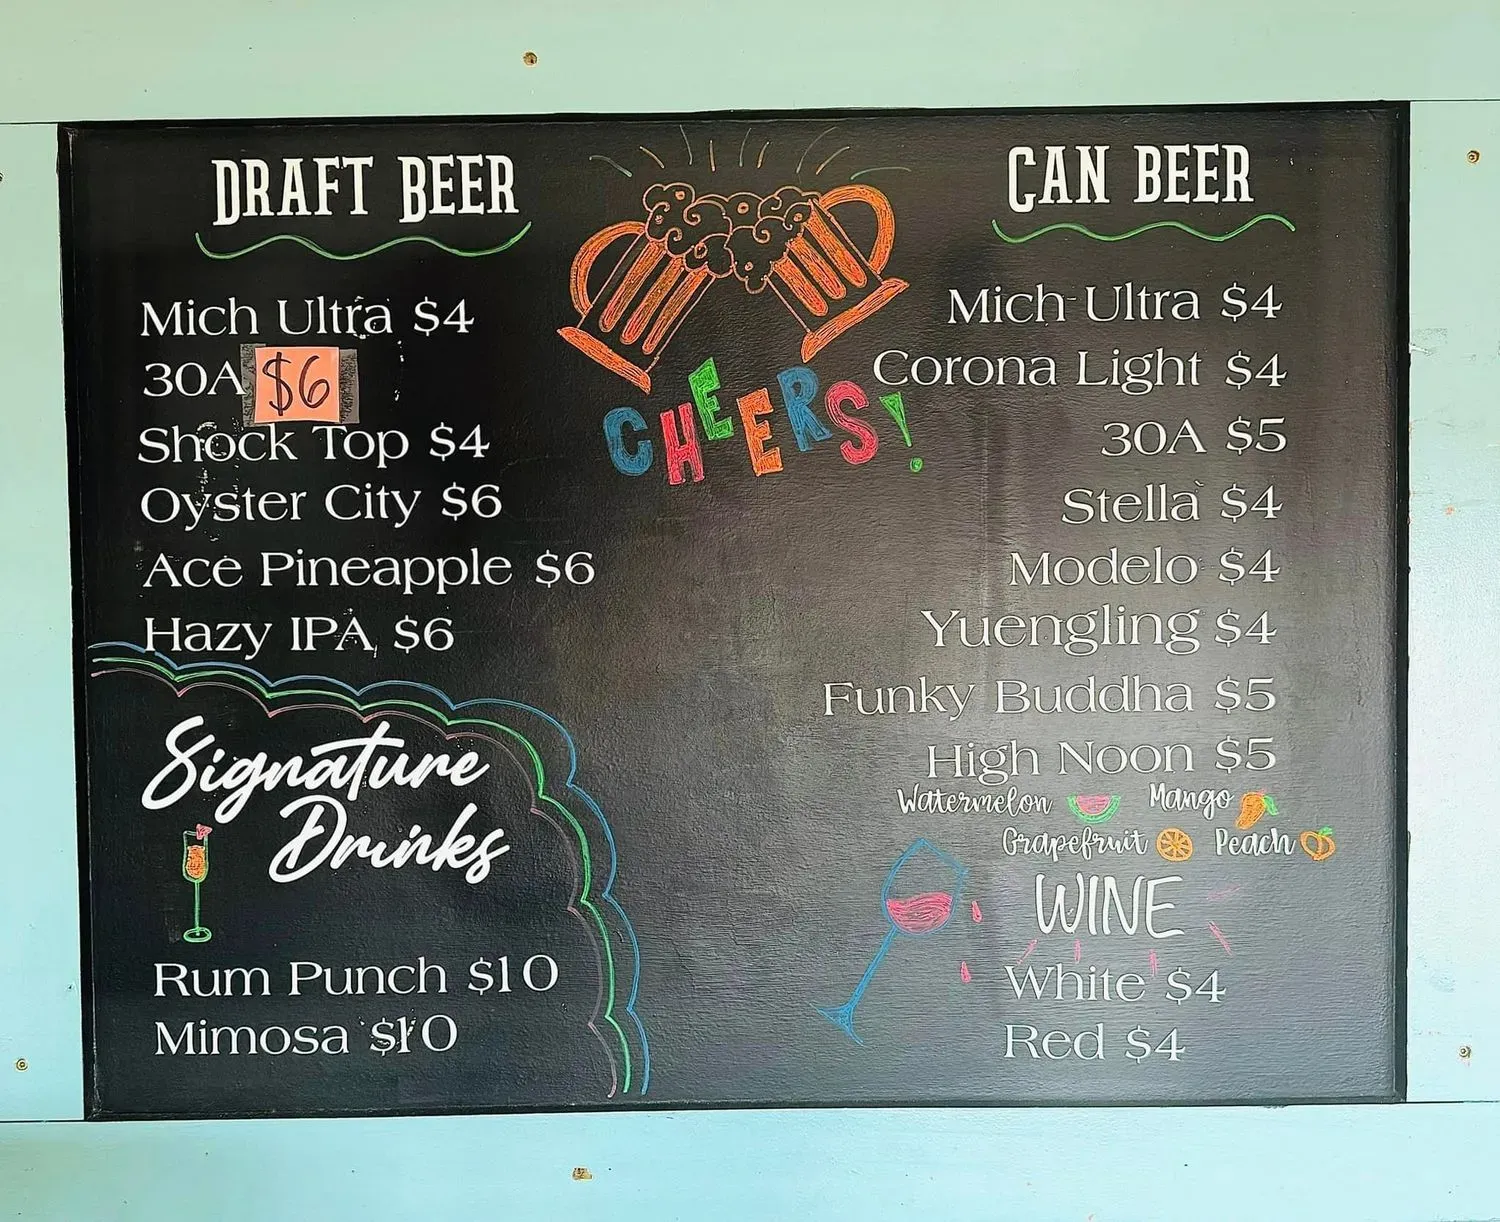 DRAFT BEER
Mich Ultra $4
30A $6
Shock Top $4
Oyster City $6
Ace Pineapple $6
Hazy IPA $6
Signature
Drinks
Rum Punch $10
Mimosa $10
CHEERS!
CAN BEER
Mich Ultra $4
Corona Light $4
30A $5
Stella $4
Modelo $4
Yuengling $4
Funky Buddha $5
High Noon $5
Watermelon Mango
Grapefruit Peach
WINE
White $4
Red $4